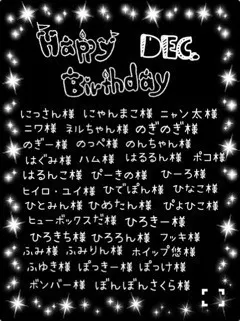 Happy DEC.
Birthday
にっさん様 にゃんまこ様 ニャン太様
ニワ様 ネルちゃん様 のぎのぎ様
のぎー様 のっぺ様 のんちゃん様
はぐみ様 ハム様 はるるん様 ポコ様
はるんこ様 ぴーきの様 ひーろ様
ヒイロ・ユイ様 ひでぽん様 ひなこ様
ひとみん様 ひめたん様 ぴよひこ様
ヒューボックスだ様 ひろきー様
ひろきち様 ひろろん様 フッキ様
ふみ様 ふみりん様 ホイップ悠様
ふゆき様 ぽっきー様 ぽっけ様
ボンバー様 ぽんぽんさくら様